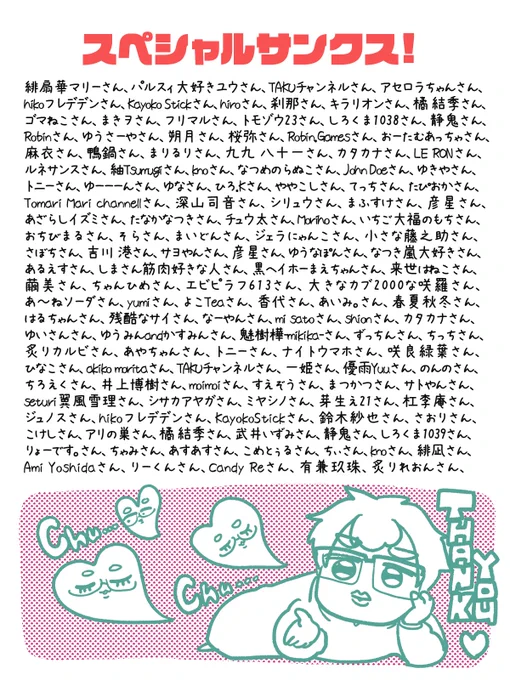 スペシャルサンクス!
緋扇華マリーさん、パルスィ大好きユウさん、TAKUチャンネルさん、アセロラちゃんさん、
hikoフレデデンさん、Kayoko Stickさん、hiroさん、刹那さん、キラリオンさん、橘 結季さん、
ゴマねこさん、まきヲさん、フリマルさん、トモゾウ23さん、しろくま1038さん、静鬼さん、
Robinさん、ゆうさーやさん、朔月さん、桜弥さん、Robin,Gamesさん、おーたむあっちゃさん、
麻衣さん、鴨鍋さん、まりるりさん、九九 八十一さん、カタカナさん、LE RONさん、
ルネサンスさん、紬Tsumugiさん、knoさん、なつめのらぬこさん、John Doeさん、ゆきやさん、
トニーさん、ゆーーーんさん、ゆなさん、ひろ,Kさん、ややこしさん、てっちさん、たぴおかさん、
Tomari Mari channelさん、深山司音さん、シリュウさん、まふすけさん、彦星さん、
あざらしイズミさん、たなかなつきさん、チュウ太さん、Morihoさん、いちご大福のもちさん、
おちびまるさん、そらさん、まいどんさん、ジェラにゃんこさん、小さな藤之助さん、
さぼちさん、吉川 港さん、サヨやんさん、彦星さん、ゆうなぽんさん、なつき嵐大好きさん、
あるえすさん、しまさん筋肉好きな人さん、黒ヘイホーまえちゃんさん、来世はねこさん、
繭美さん、ちゃんひめさん、エビピラフ613さん、大きなカブ2000な咲羅さん、
あ〜ねソーダさん、yumiさん、よこTeaさん、香代さん、あいみ。さん、春夏秋冬さん、
はるちゃんさん、残酷なサイさん、なーやんさん、mi satoさん、shionさん、カタカナさん、
ゆいさんさん、ゆうみんandかすみんさん、魅樹樺-mikika-さん、ずっちんさん、ちっちさん、
炙りカルビさん、あやちゃんさん、トニーさん、ナイトウマホさん、咲良緑葉さん、
ひなこさん、akiko moritaさん、TAKUチャンネルさん、一姫さん、優雨Yuuさん、のんのさん、
ちろえくさん、井上博樹さん、moimoiさん、すえぞうさん、まつかつさん、サトやんさん、
seturi翼風雪理さん、シサカアヤガさん、ミヤシノさん、芽生え21さん、杠李庵さん、
ジュノスさん、hikoフレデデンさん、KayokoStickさん、鈴木紗也さん、さおりさん、
こけしさん、アリの巣さん、橘 結季さん、武井いずみさん、静鬼さん、しろくま1039さん、
りょーです。さん、ちゃみさん、あすあすさん、こめとぅるさん、ちぃさん、knoさん、緋凪さん、
Ami Yoshidaさん、りーくんさん、Candy Reさん、有兼玖珠、炙りれおんさん、
Chu...
Chu...
THANK
YOU